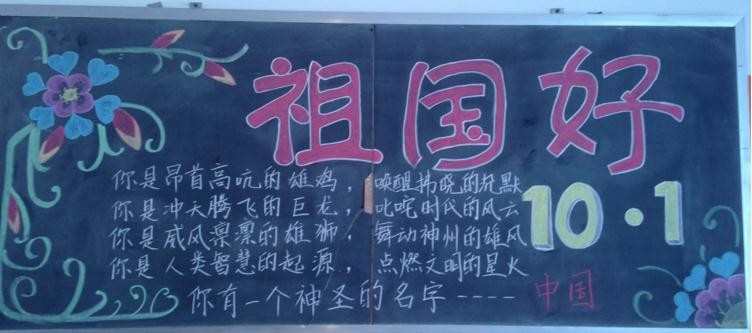 祖国好
你是昂首高吭的雄鸡，唤醒拂晓的沉默
你是冲天腾飞的巨龙，叱咤时代的风云
你是威风凛凛的雄狮，舞动神州的雄风
你是人类智慧的起源，点燃文明的星火
10·1
你有一个神圣的名字---- 中国